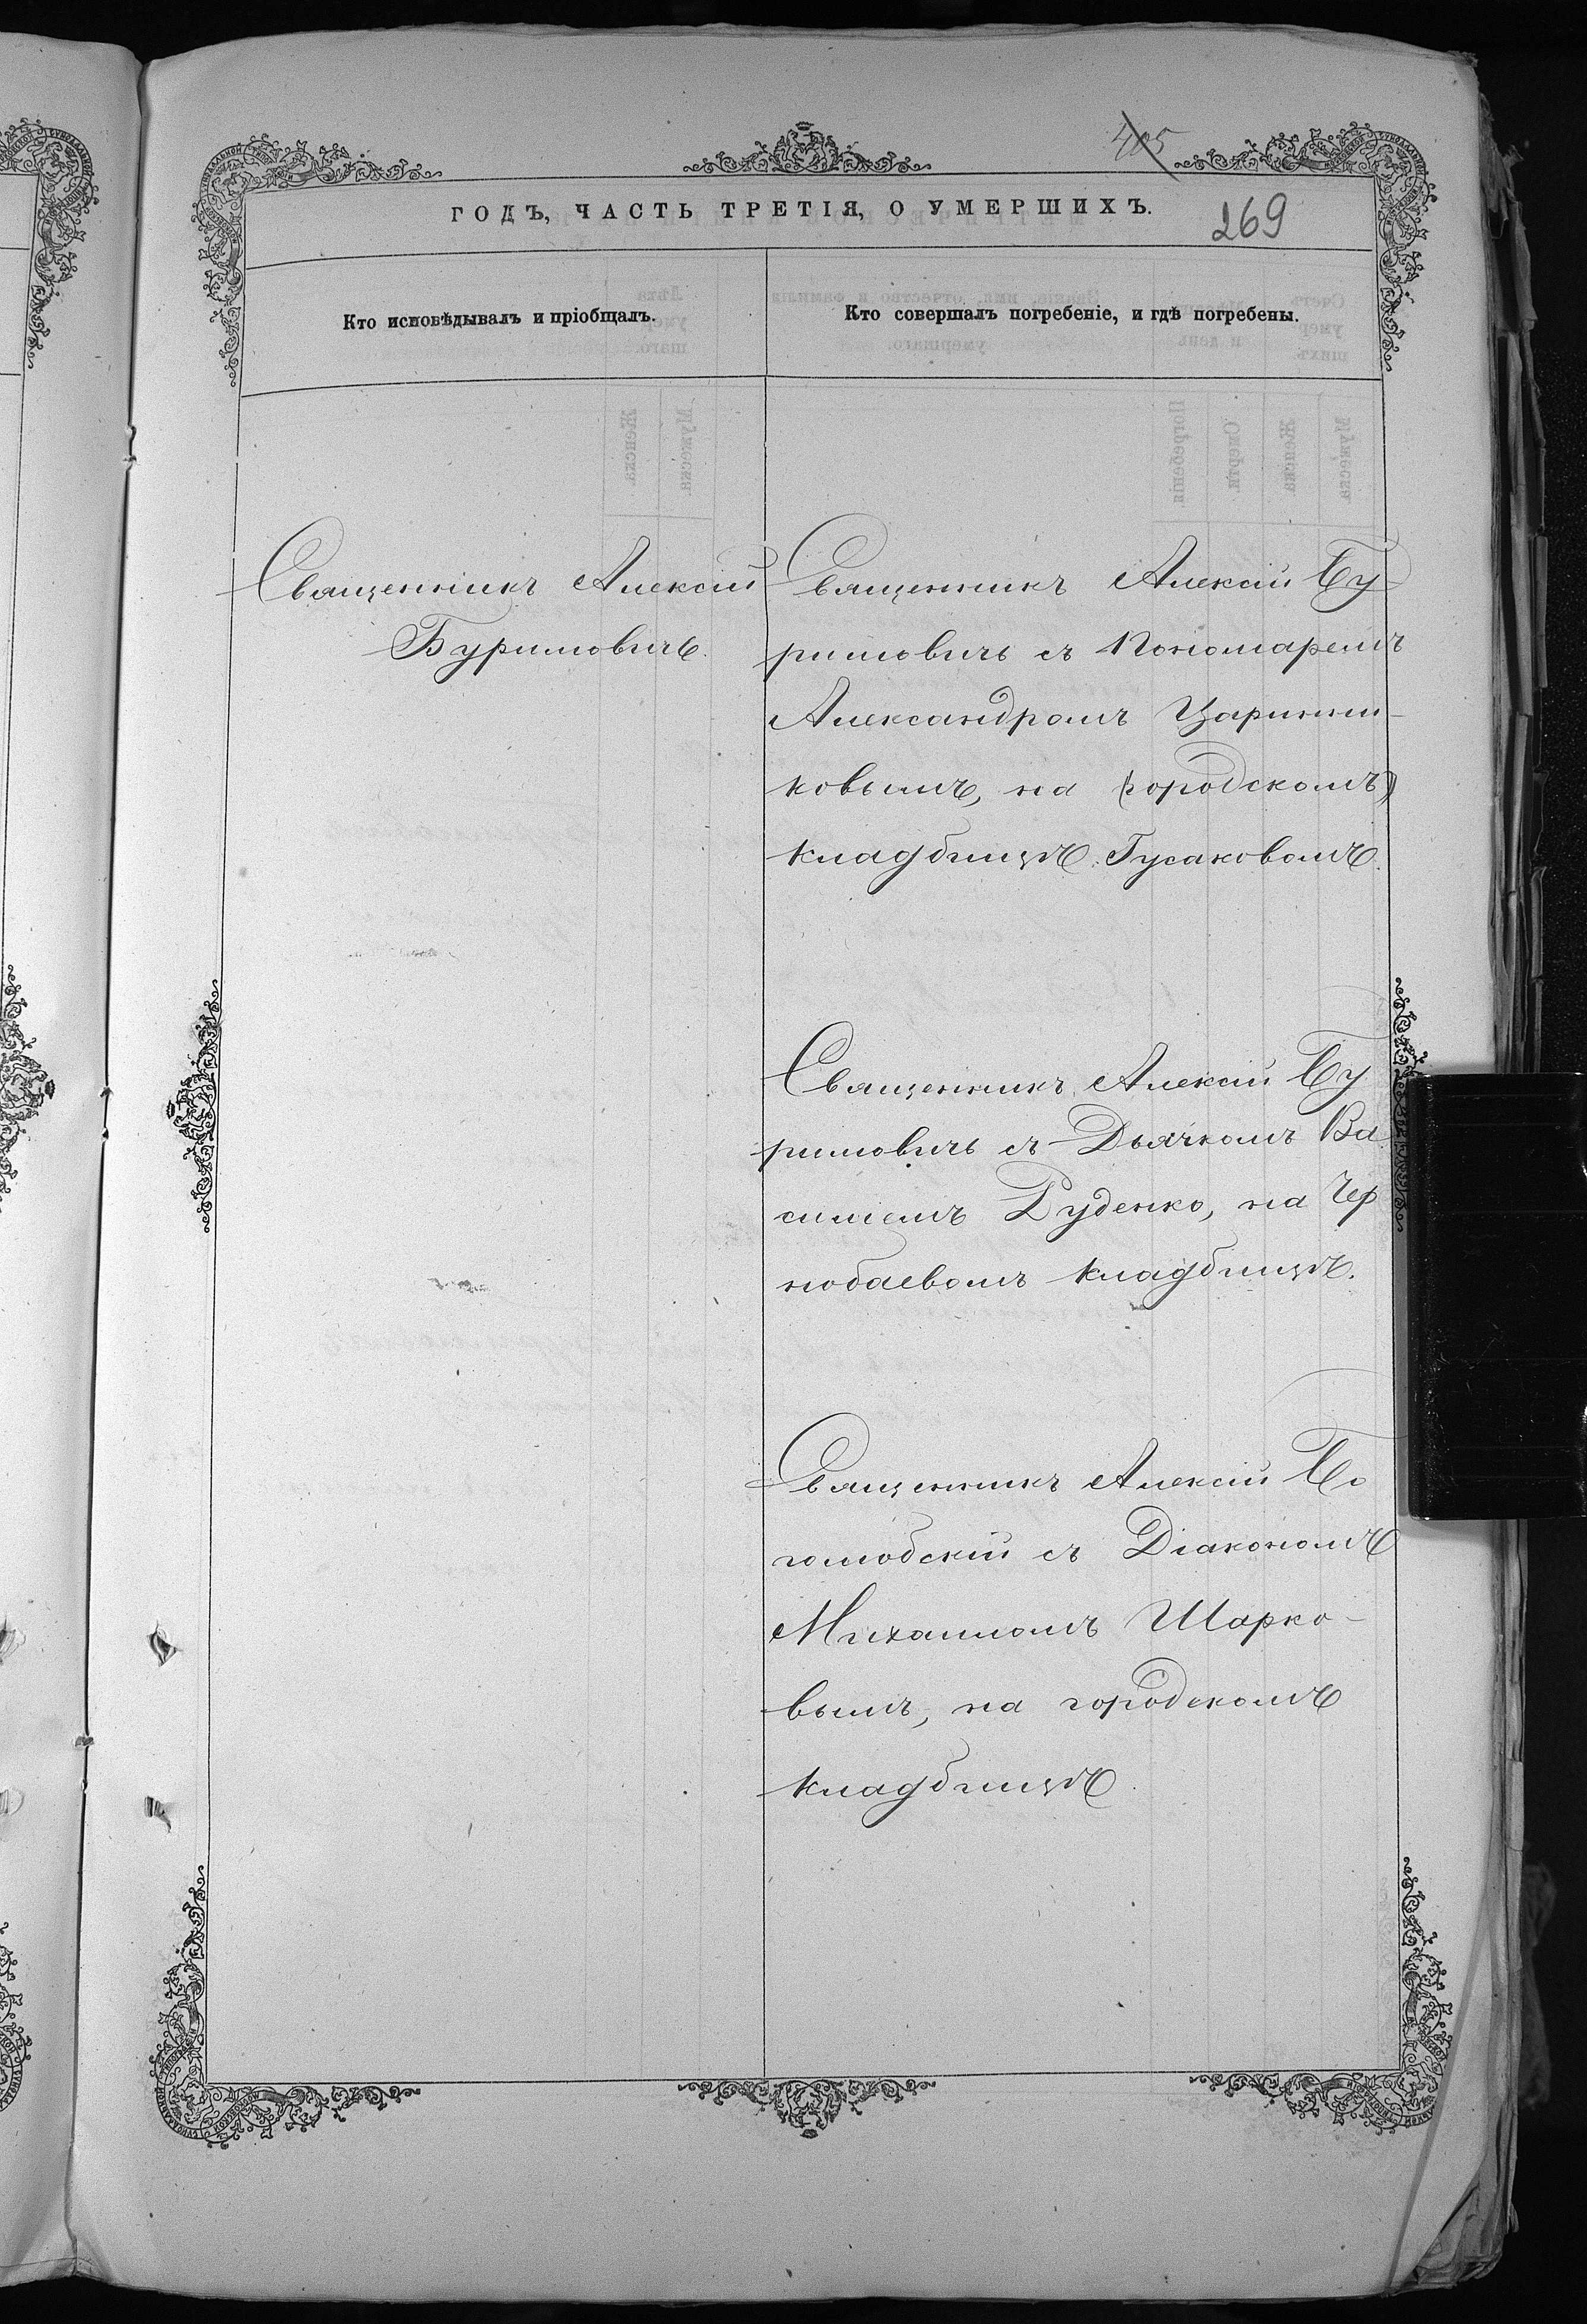 405
ГОДЪ, ЧАСТЬ ТРЕТІЯ, О УМЕРШИХЪ.
269
Кто исповѣдывалъ и пріобщалъ.
Кто совершалъ погребеніе, и гдѣ погребены.
Священникъ Алексій
Буримовичъ.
Священникъ Алексій Бу-
римовичъ съ Пономаремъ
Александромъ Царинни-
ковымъ, на (городскомъ)
кладбищѣ Гусаковомъ.
Священникъ Алексій Бу
римовичъ съ Дьячкомъ Ва
силіемъ Руденко, на Чер
нобаевомъ кладбищѣ.
Священникъ Алексій Бо
голюбскій съ Діакономъ
Михаиломъ Шарко-
вымъ, на городскомъ
кладбищѣ.